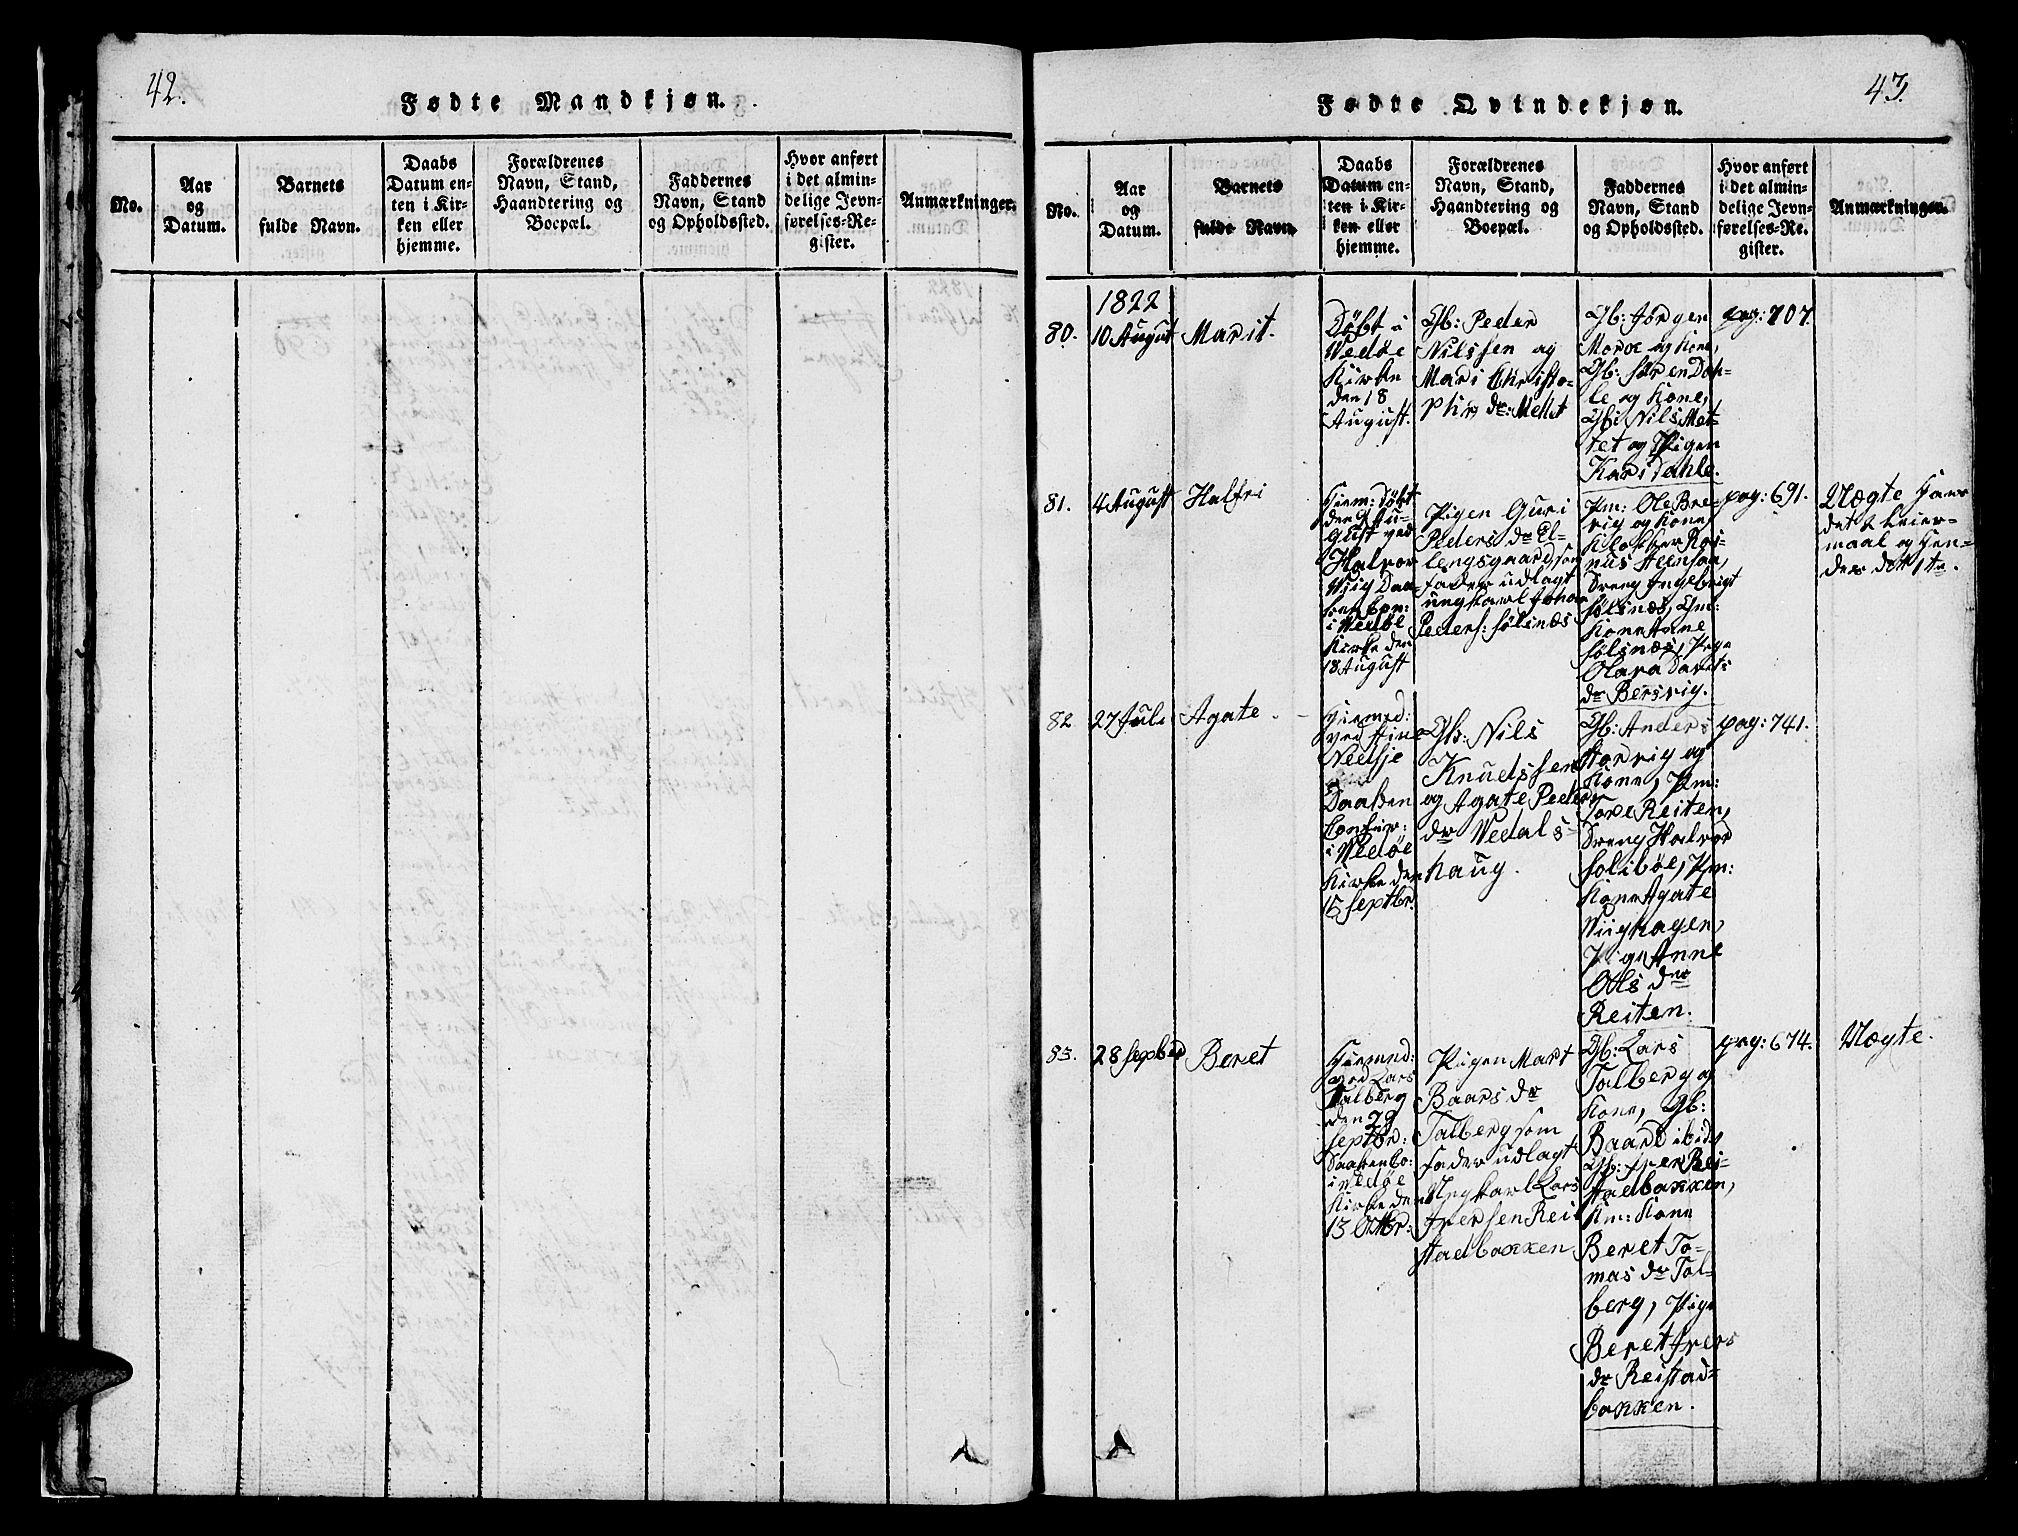 42.
Fødte Mandkjøn.
No.
Aar
og
Datum.
Barnets
fulde Navn.
Daabs
Datum en-
ten i Kir-
ken eller
hjemme.
Forældrenes
Navn, Stand,
Haandtering og
Boepæl.
Faddernes
Navn, Stand
og Opholdssted.
Hvor anført
i det almin-
delige Jevn-
førelses-Re-
gister.
Anmærkninger.
43.
Fødte Qvindekjøn.
No.
Aar
og
Datum.
Barnets
fulde Navn.
Daabs
Datum en-
ten i Kir-
ken eller
hjemme.
Forældrenes
Navn, Stand,
Haandtering og
Boepæl.
Faddernes
Navn, Stand
og Opholdssted.
Hvor anført
i det almin-
delige Jevn-
førelses-Re-
gister.
Anmærkninger.
1822
80.
10 August
Marit.
Døbt i
Vedøe
Kirke
den 18
August.
Gb: Peder
Nilssen og
Mari Christo-
phr. dr: Mettet
Gb: Jørgen
Moroe og Kone,
Gb: Søren Dah-
le og Kone,
Gb: Nils Met-
tet og Pigen
Kari Dahle.
pag: 707.
81.
4 August
Halfri
Hiem: døbt
den 9 Au-
gust ved
Halvor
Viig Daa-
ben Con:
i Vedøe
Kirke den
18 August
Pigen Guri
Peders dr El-
lengsgaard som
fader udlagt
ungkarl Johan
Peders: Sølsnæs
Pm: Ole Bre-
vig og Kone
Klokker Ras-
mus Steensøn,
Dreng Ingebrigt
Sølsnæs, Gm:
Kone Anne
Sølsnæs, Pige
Olava Davids
dr Bersvig.
pag: 691.
Uægte Hans
det 2 Leier-
maal og Hen-
des det 1te.
82
27 Juli
Agate.
Hiemmed:
ved Stine
Nedsje
Daaben
Confir:
i Vedøe
Kirke den
15 Septbr.
Gb: Nils
Knudssen
og Agate Peders
dr Vedals-
haug.
Gb: Anders
Storvig og
Kone, Pm:
Tore Reiten,
Dreng Halvor
Solibøe, Pm:
Kone Agate
Viighagen,
Pige Anne
Ols dr
Reiten.
pag: 741.
83.
28 Septbr
Beret
Hiemmed:
ved Lars
Talberg
den 29
Septbr:
Daaben Co:
i Vedøe
Kirke den
13 Octbr:
Pigen Mart
Baars dr
Talberg som
fader udlagt
Ungkarl Lars
Iversen Rei
stadbakken
Gb: Lars
Talberg og
Kone, Gb:
Baard ibid,
Gb: Iver Rei-
stadbakken,
Km: Kone
Beret To-
mas dr Tal-
berg, Pige
Beret Ivers
dr Reistad-
bakken.
pag: 674.
Uægte.